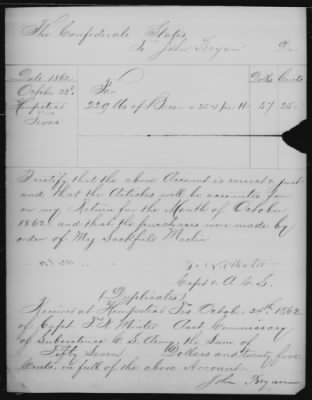 The Confederate States,
To John Bryan Dr.
Date 1862 Dolls Cents
October 24th For
Hempstead 229 lbs of Bacon a 25 ¢ per lb 57 25
Texas
I certify that the above Account is correct & just
and that the Articles will be accounted for
on my Return for the Month of October
1862 and that the purchases were made by
order of Maj Sackfield Maclin
Capt & A. C. S.
(Duplicates)
Received at Hempstead Tex. Octobr. 24th 1862
of Capt. F R Minter Asst Commissary
of Subsistence C. S. Army, the Sum of
Fifty Seven Dollars and twenty five
Cents, in full of the above Account.
John Bryan